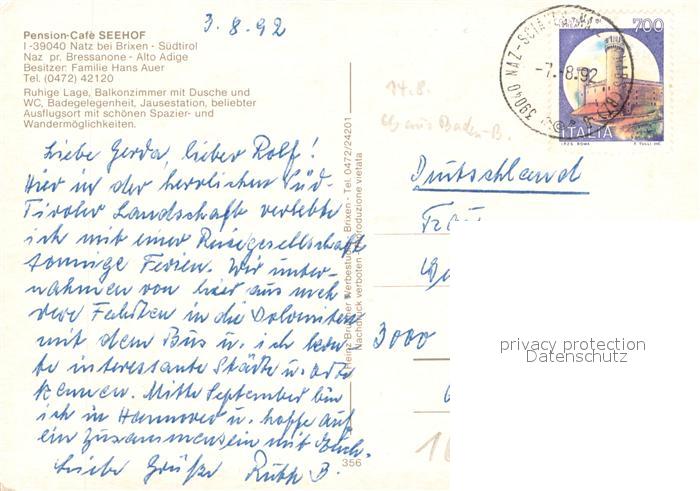 3.8.92
Pension-Cafè SEEHOF
I-39040 Natz bei Brixen - Südtirol
Naz pr. Bressanone - Alto Adige
Besitzer: Familie Hans Auer
Tel. (0472) 42120
Ruhige Lage, Balkonzimmer mit Dusche und
WC, Badegelegenheit, Jausestation, beliebter
Ausflugsort mit schönen Spazier- und
Wandermöglichkeiten.
Liebe Gerda, lieber Rolf!
Hier in der herrlichen Süd-
Tiroler Landschaft verlebte
ich mit einer Reisegesellschaft
sonnige Ferien. Wir unter-
nahmen von hier aus meh
rere Fahrten in die Dolomiten
mit dem Bus u. ich lern
te interessante Städte u. Orte
kennen. Mitte September bin
ich in Hannover u. hoffe auf
ein Zusammensein mit Euch.
Liebe Grüße Ruth B.
356
Werbestudio - Brixen - Tel. 0472/24201
Nachdruck verboten - Riproduzione vietata
700
ITALIA
I.P.Z.S. ROMA
39040 NAZ-SCIAVES
-7.-8.92
14.8.
aus Baden-B.
Deutschland
3000
privacy protection
Datenschutz